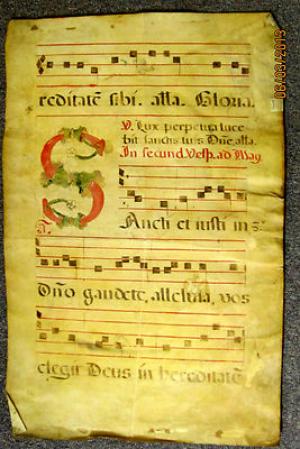 reditatē sibi. alla. Gloria.
V. Lux perpetua luce
bit sanctis tuis Dn̄e, alla.
In secund. Vesp. ad Mag.
S
Ancti et iusti in
Dn̄o gaudete, alleluia, vos
elegit Deus in hereditatē
06/03/2013